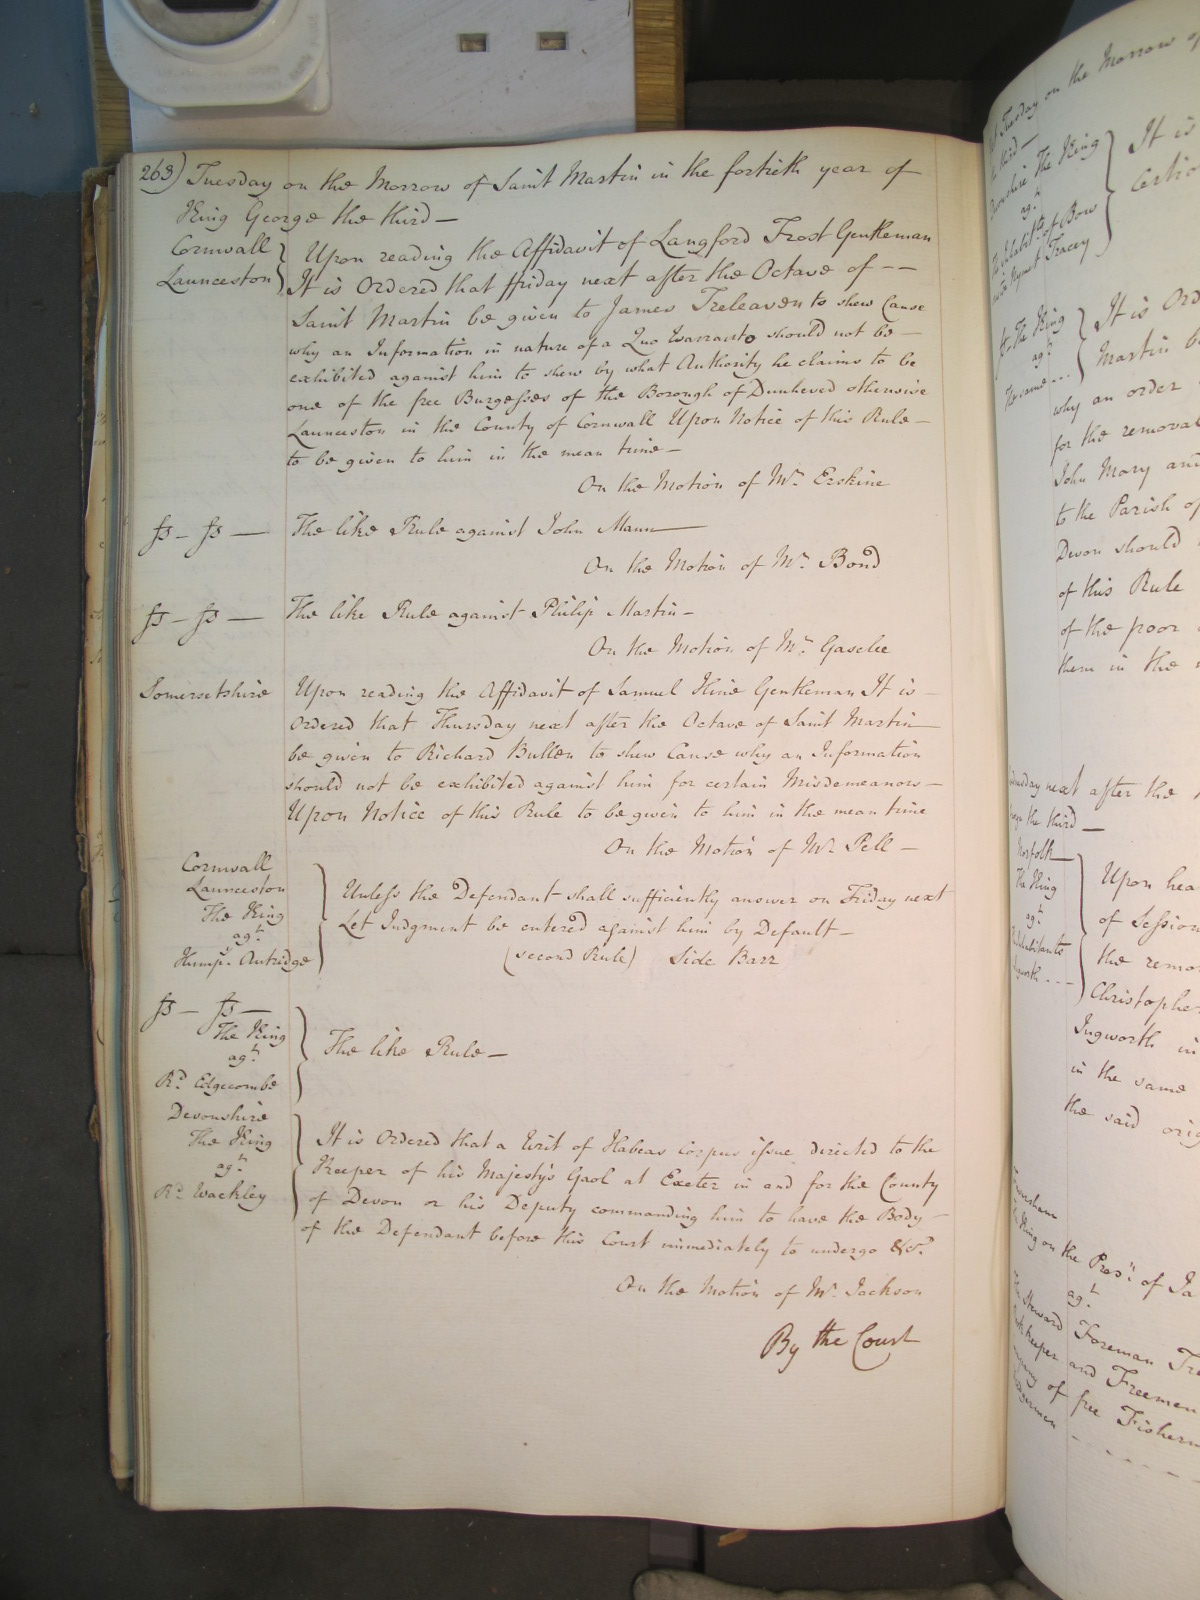 263) Tuesday on the Morrow of Saint Martin in the fortieth year of
King George the third —
Cornwall
Launceston
Upon reading the Affidavit of Langford Frost Gentleman
It is Ordered that ffriday next after the Octave of — —
Saint Martin be given to James Treleaven to shew Cause
why an Information in nature of a Quo Warranto should not be —
exhibited against him to shew by what Authority he claims to be
one of the free Burgesses of the Borough of Dunheved otherwise
Launceston in the County of Cornwall Upon Notice of this Rule —
to be given to him in the mean time —
On the Motion of Mr. Erskine
fs — fs — The like Rule against John Mann —
On the Motion of Mr. Bond
fs — fs — The like Rule against Philip Martin —
On the Motion of Mr. Gaselee
Somersetshire Upon reading the Affidavit of Samuel Hine Gentleman It is —
Ordered that Thursday next after the Octave of Saint Martin —
be given to Richard Bullen to shew Cause why an Information
should not be exhibited against him for certain Misdemeanors —
Upon Notice of this Rule to be given to him in the mean time
On the Motion of Mr. Pell —
Cornwall
Launceston
The King
agt.
Humpy. Autredge
Unless the Defendant shall sufficiently answer on Friday next
Let Judgment be entered against him by Default —
(second Rule) Side Barr
fs — fs —
The King
agt.
Rd. Edgecombe
The like Rule —
Devonshire
The King
agt.
Rd. Wackley
It is Ordered that a Writ of Habeas Corpus issue directed to the
Keeper of his Majesty's Gaol at Exeter in and for the County
of Devon or his Deputy commanding him to have the Body —
of the Defendant before this Court immediately to undergo &c.
On the Motion of Mr. Jackson
By the Court
Tuesday on the Morrow of
third —
The King
agt.
of Bow
Tracey
It is
The King
agt.
The same - - -
It is Ord
Martin b
why an order
for the removal
John Mary and
to the Parish of
Devon should
of this Rule
of the poor
them in the
next after the
the third —
Norfolk —
The King
agt.
Inhabitants
Upon hea
of Session
the remo
Christopher
Ingworth in
in the same
the said orig
on the Prosn. of Ja
agt.
Steward Foreman Tre
keeper and Freemen
of free Fisherm